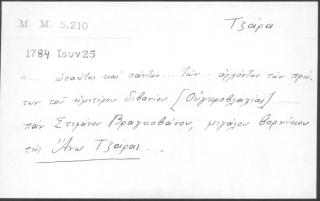 Μ. Μ. 5.210
Τζάρα
1784 Ιουν 25
"... ὡσαύτως καὶ πάντων .. τῶν .. ἀρχόντων τῶν πρώ-
των τοῦ ἡμετέρου διβανίου [Οὐγκροβλαχίας] ......
πὰν Στεφάνου Βραγκοβάνου, μεγάλου βορνίκου
τῆς Ἄνω Τζάρας. „